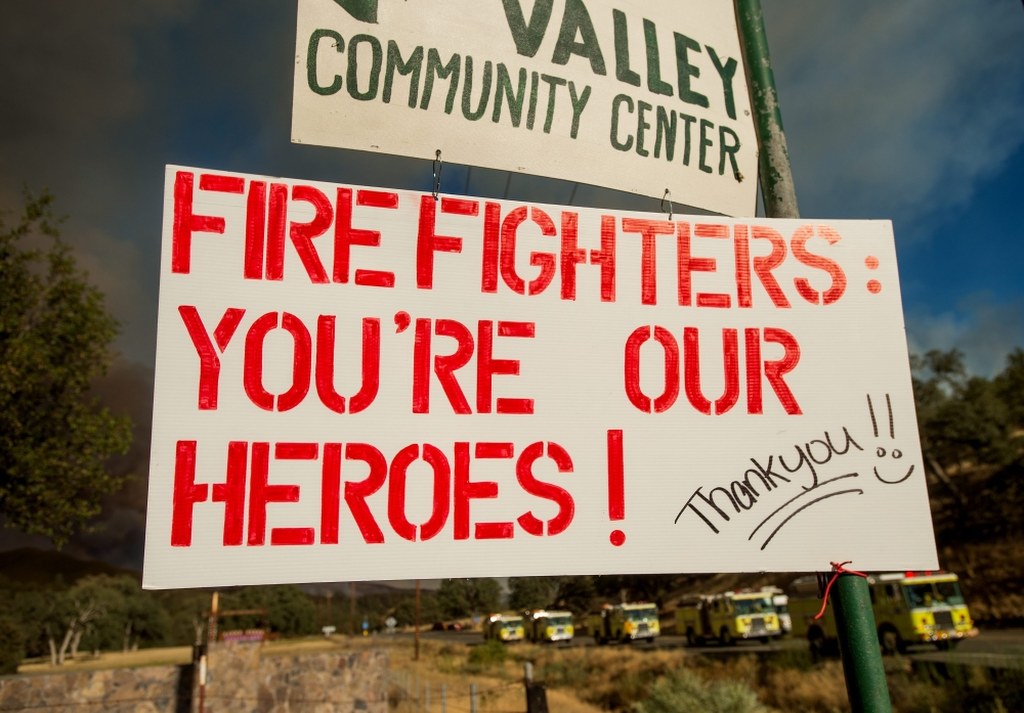 VALLEY
COMMUNITY CENTER
FIREFIGHTERS:
YOU'RE OUR
HEROES!
Thank you!!